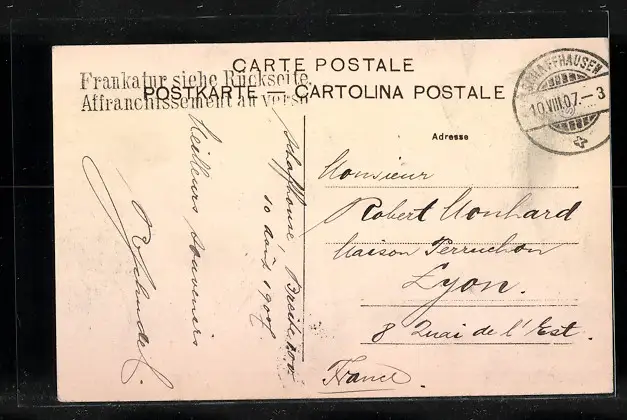 CARTE POSTALE
Frankatur siehe Rückseite.
Affranchissement au verso
POSTKARTE — CARTOLINA POSTALE
SCHAFFHAUSEN
10.VIII.07.-3
Adresse
Monsieur
Robert Monhard
Maison Perruchon
Lyon.
8 Quai de l'Est.
France.
Schaffhouse,
10 août 1907.
Meilleurs souvenirs